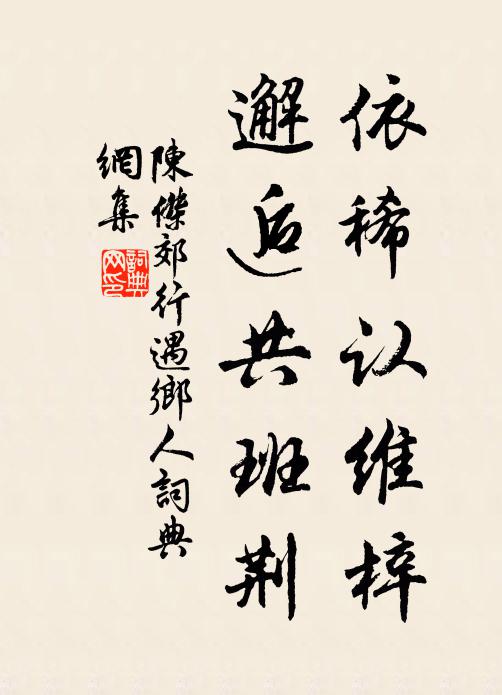 依稀认维梓
邂逅共班荆
陳傑郊行遇鄉人詞典
網集
詞典
网印